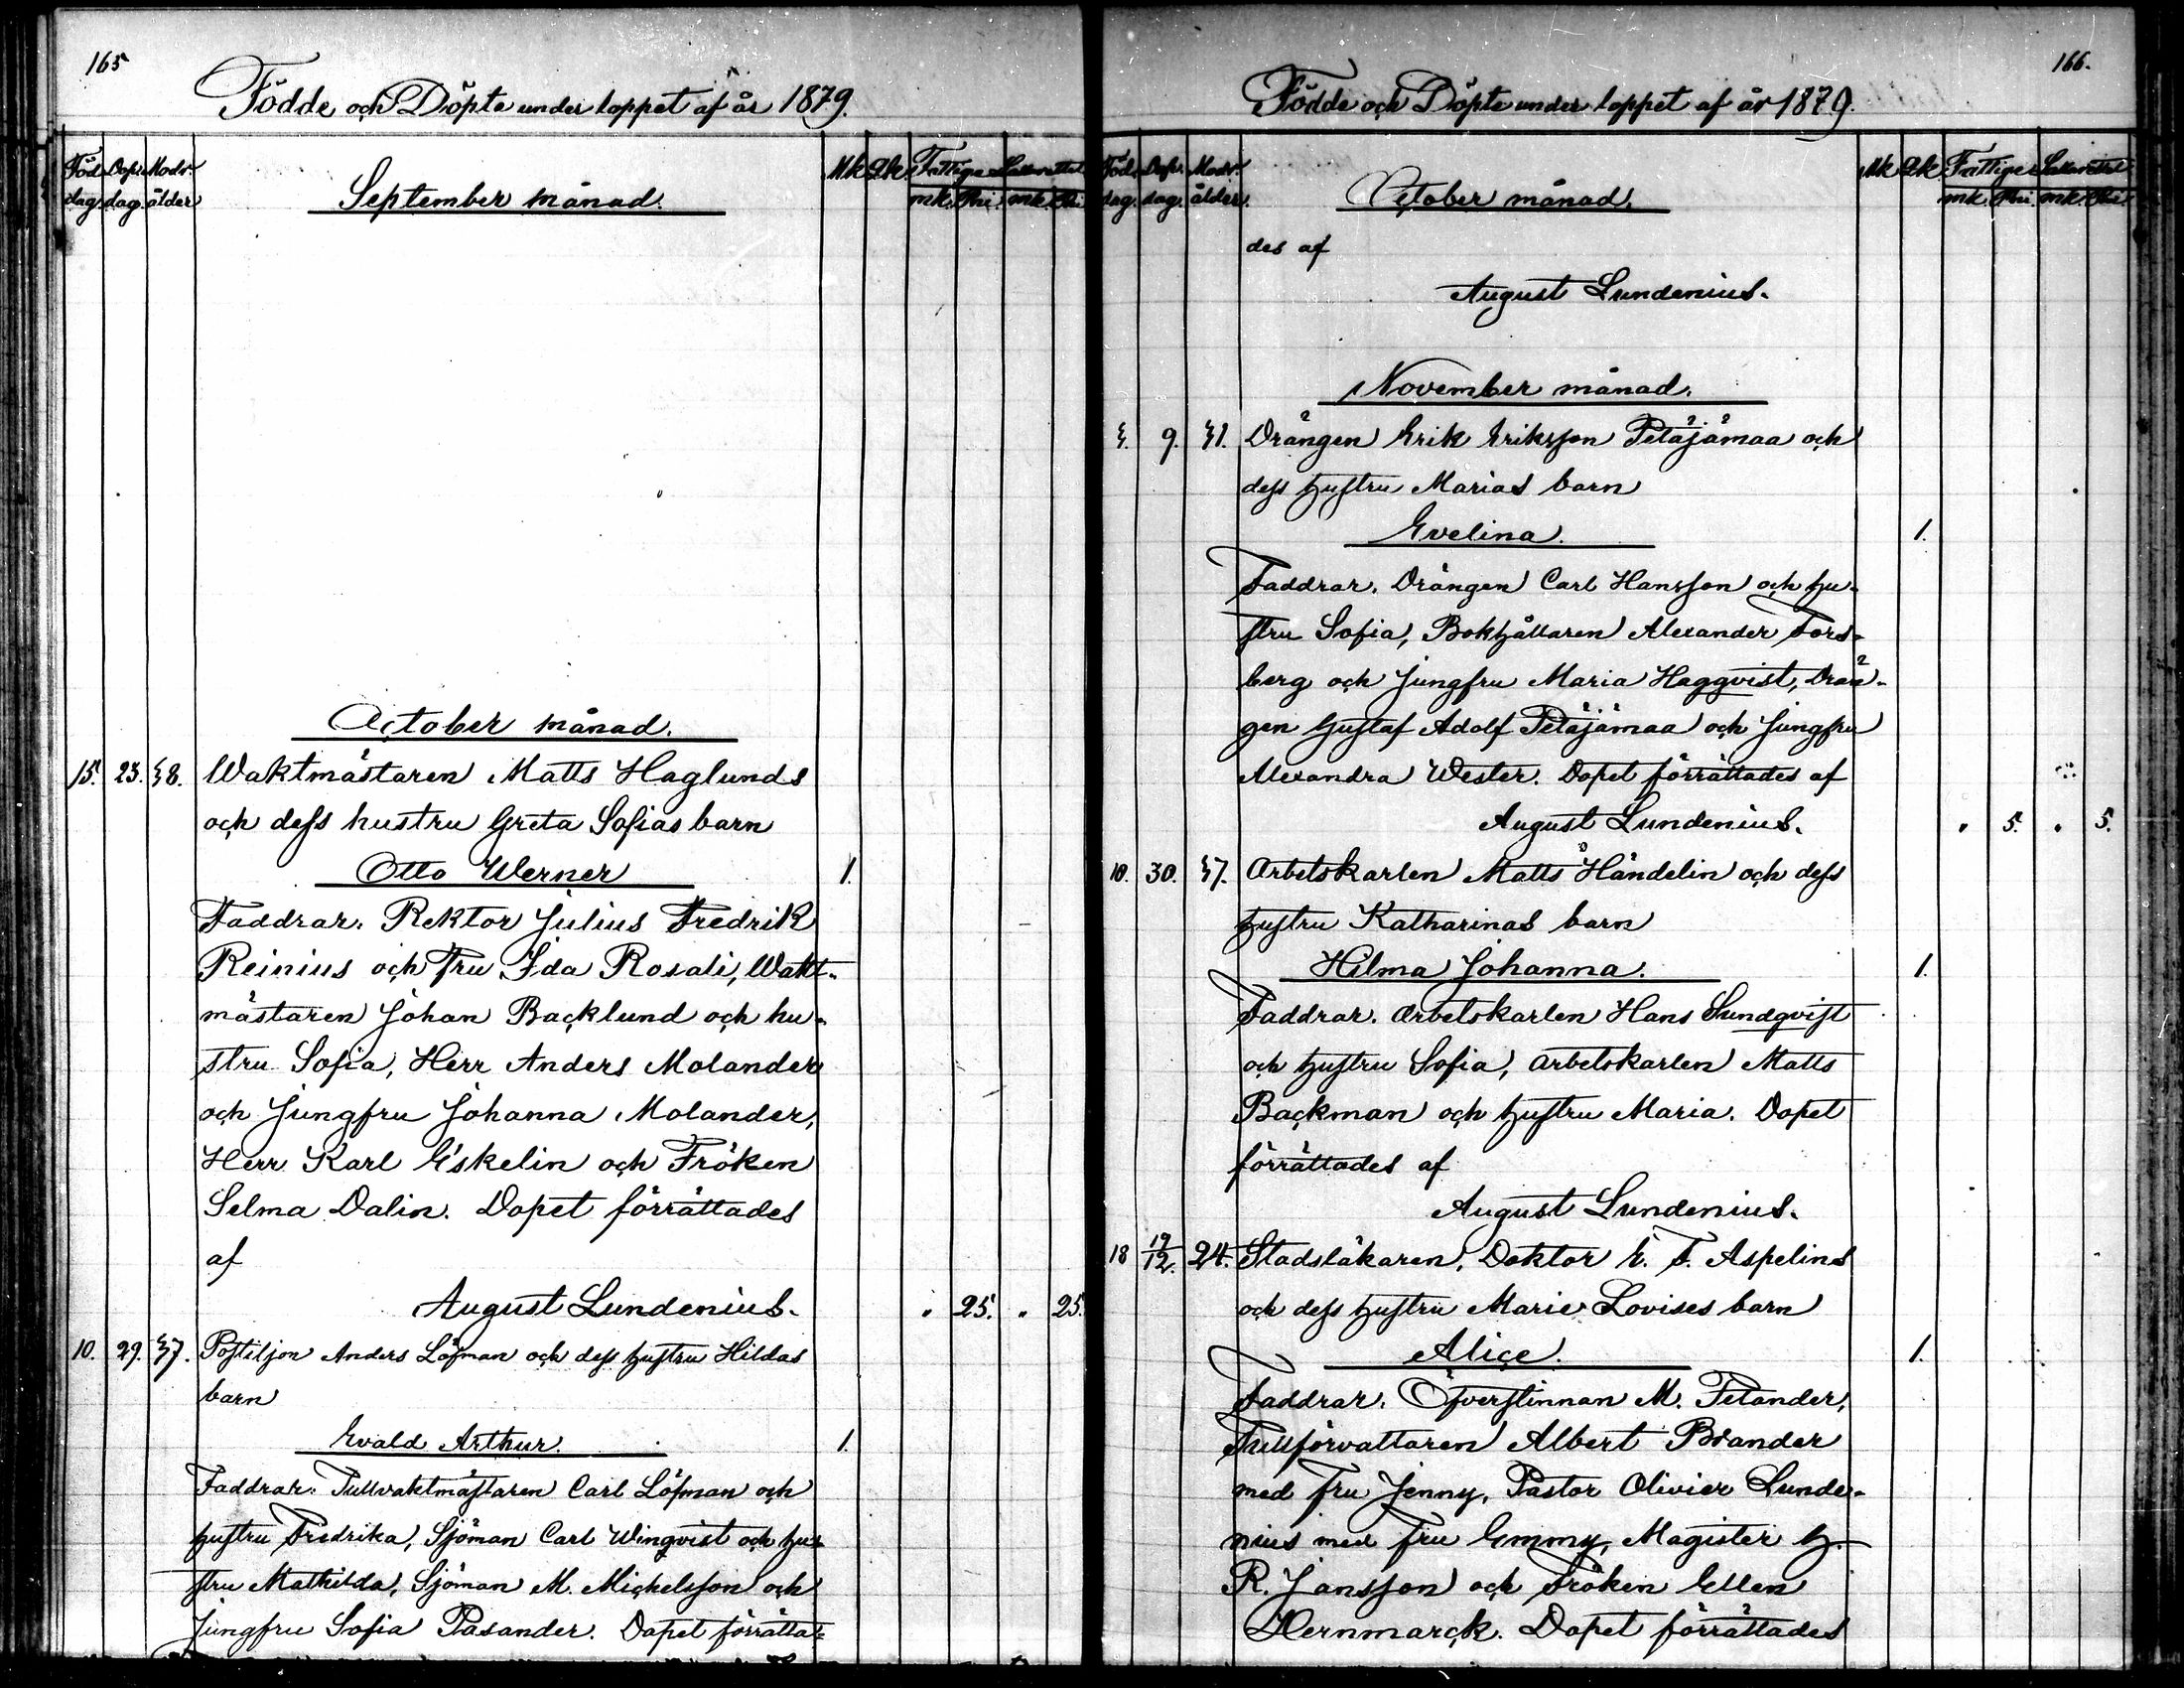 165
Födde och Döpte under loppet af år 1879.
Föd. dag. Dop. dag. Modr. ålder September månad. Mk Qk. Fattige mk. Pni. mk. Pni.
October månad.
15. 23. 38. Waktmästaren Matts Haglunds
och dess hustru Greta Sofias barn
Otto Werner 1.
Faddrar. Rektor Julius Fredrik
Reinius och Fru Ida Rosali, Wakt-
mästaren Johan Backlund och hu-
stru Sofia, Herr Anders Molander
och Jungfru Johanna Molander,
Herr Karl Eskelin och Fröken
Selma Dalin. Dopet förrättades
af
August Lundenius. " 25. " 25.
10. 29. 37. Postiljon Anders Löfman och dess hustru Hildas
barn
Evald Arthur. 1.
Faddrar. Tullvaktmästaren Carl Löfman och
hustru Fredrika, Sjöman Carl Winqvist och hu-
stru Mathilda, Sjöman M. Michelsson och
Jungfru Sofia Pasander. Dopet förrätta-
166.
Födde och Döpte under loppet af år 1879.
Föd. dag. Dop. dag. Modr. ålder. October månad. Mk Qk Fattige mk. Pni. mk. Pni
des af
August Lundenius.
November månad.
3. 9. 31. Drängen Erik Eriksson Petäjämaa och
dess hustru Marias barn
Evelina. 1.
Faddrar. Drängen Carl Hansson och hu-
stru Sofia, Bokhållaren Alexander Fors-
berg och Jungfru Maria Haggvist, Drän-
gen Gustaf Adolf Petäjämaa och Jungfru
Alexandra Wester. Dopet förrättades af
August Lundenius. " 5. " 5.
10. 30. 37. Arbetskarlen Matts Händelin och dess
hustru Katharinas barn
Hilma Johanna. 1.
Faddrar. Arbetskarlen Hans Sundqvist
och hustru Sofia, arbetskarlen Matts
Backman och hustru Maria. Dopet
förrättades af
August Lundenius.
18 19/12. 24. Stadsläkaren, Doktor E. F. Aspelins
och dess hustru Marie Lovises barn
Alice. 1.
Faddrar. Öfverstinnan M. Telander,
Tullförvaltaren Albert Brander
med Fru Jenny, Pastor Olivier Lunde-
nius med Fru Emmy, Magister H.
R. Jansson och Fröken Ellen
Hernmarck. Dopet förrättades